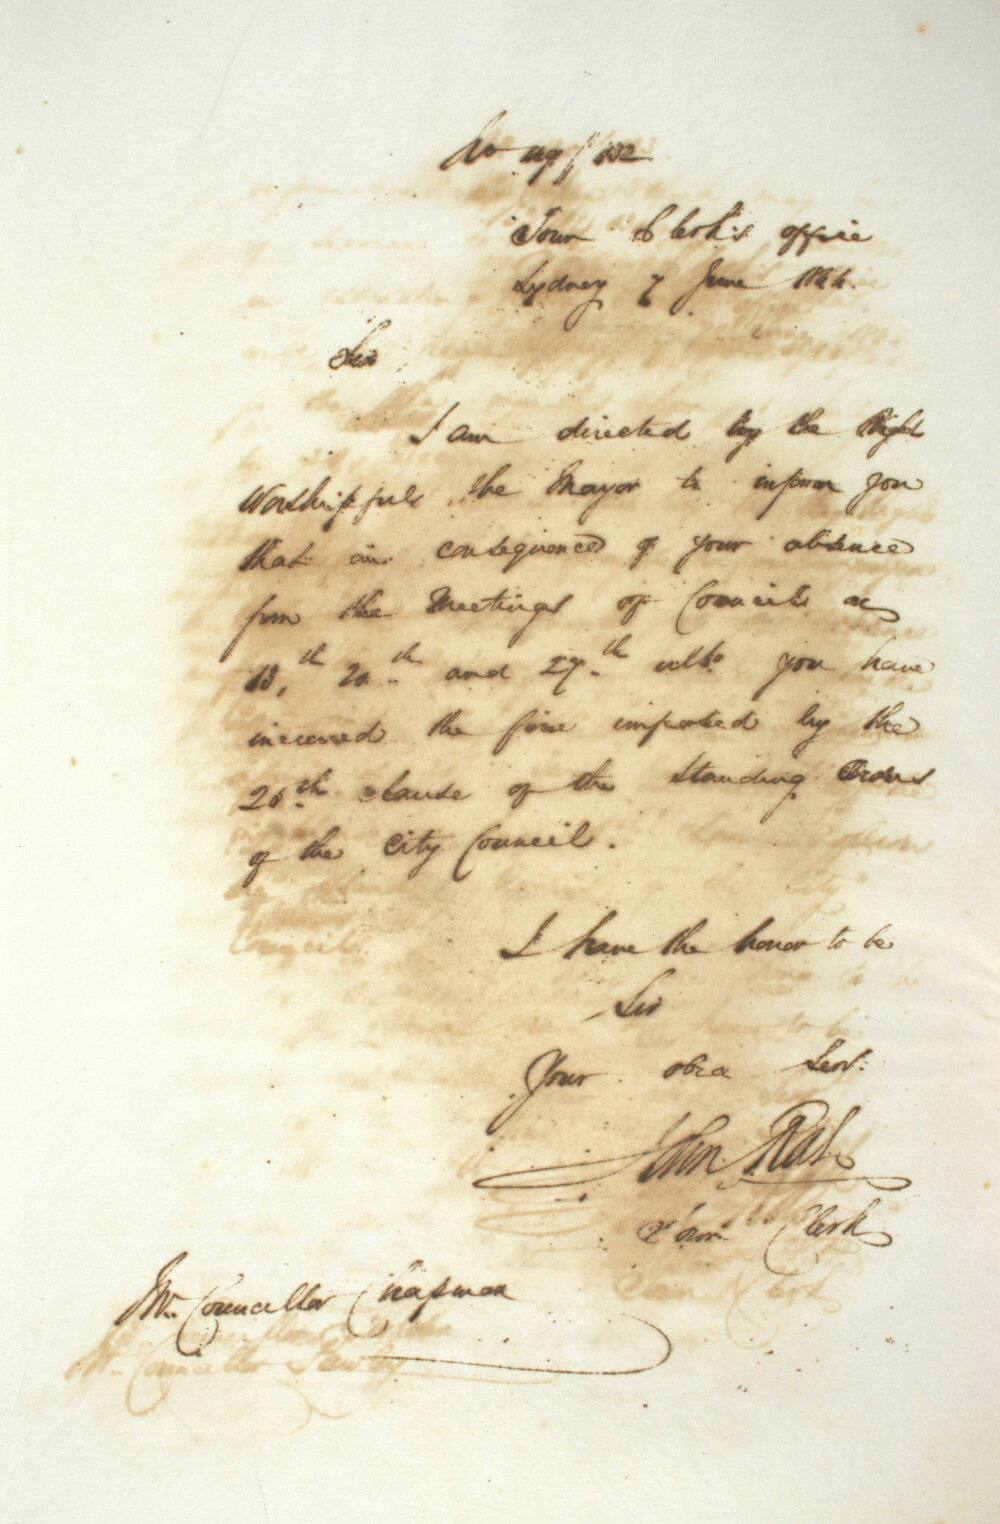 Town Clerk's office
Sydney 7 June 1844.
Sir
I am directed by the Right
Worshipful the Mayor to inform you
that in consequence of your absence
from the Meetings of Council on
13,th 20th and 27th ulto you have
incurred the fine imposed by the
26th clause of the Standing Orders
of the City Council.
I have the honor to be
Sir
Your obed Servt
John Rae
Town Clerk
Mr Councillor Chapman